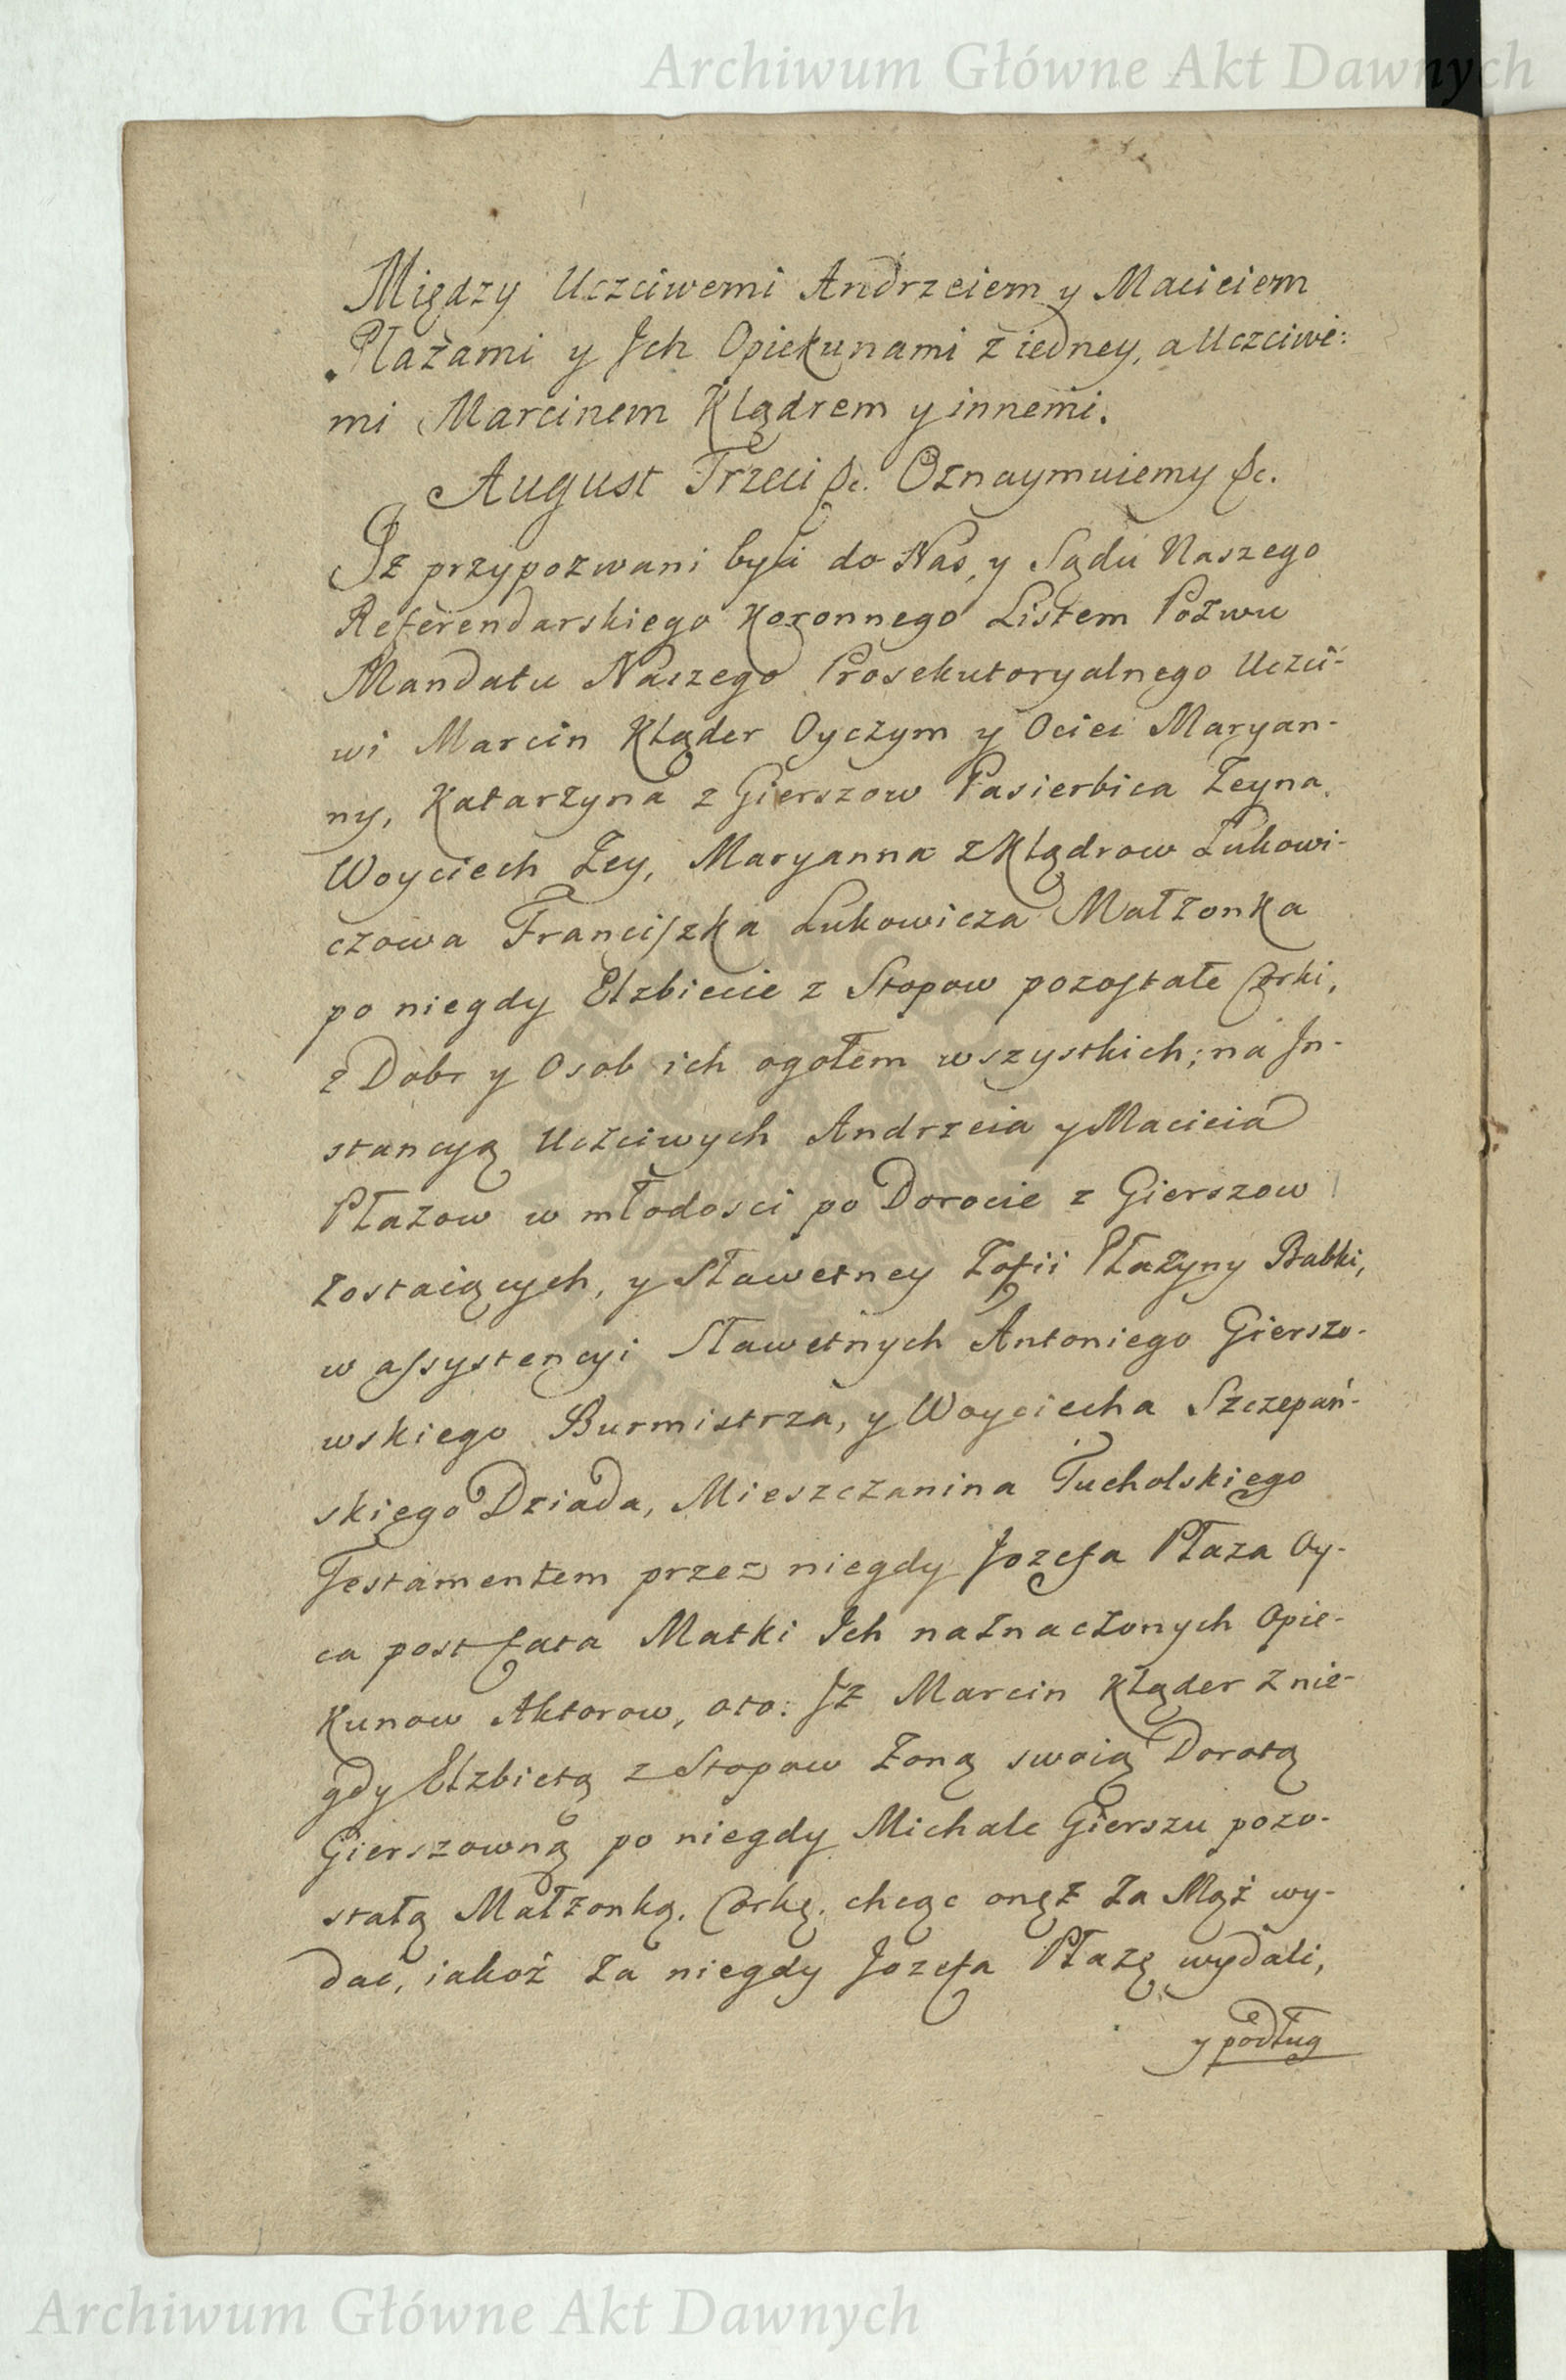 Archiwum Główne Akt Dawnych
Między Uczciwemi Andrzeiem y Macieiem
Płazami y Ich Opiekunami z iedney, a Uczciwe:
mi Marcinem Klądrem y innemi.
August Trzeci &c. Oznaymuiemy &c.
Iż przypozwani byli do Nas, y Sądu Naszego
Referendarskiego Koronnego Listem Pozwu
Mandatu Naszego Prosekutoryalnego Uczci-
wi Marcin Kląder Oyczym y Ociec Maryan-
ny, Katarzyna z Gierszow Pasierbica Zeyna,
Woyciech Zey, Maryanna z Klądrow Lukowi-
czowa Franciszka Lukowicza Małzonka
po niegdy Elzbiecie z Stopow pozostałe Corki,
z Dobr y Osob ich ogołem wszystkich; na In-
stancyą Uczciwych Andrzeia y Macieia
Płazow w młodosci po Dorocie z Gierszow
zostaiących, y Sławetney Zofii Płazyny Babki,
w assystencyi Sławetnych Antoniego Gierszo-
wskiego Burmistrza, y Woyciecha Szczepań-
skiego Dziada, Mieszczanina Tucholskiego
Testamentem przez niegdy Jozefa Płaza Oy-
ca post fata Matki Ich naznaczonych Opie-
kunow Aktorow, oto: Iż Marcin Kląder z nie-
gdy Elzbietą z Stopow Zoną swoią Dorotą
Gierszowną po niegdy Michale Gierszu pozo-
stałą Małzonką, Corkę, chcąc onęż za Mąż wy-
dać, iakoż za niegdy Jozefa Płazę wydali,
y podług
Archiwum Główne Akt Dawnych